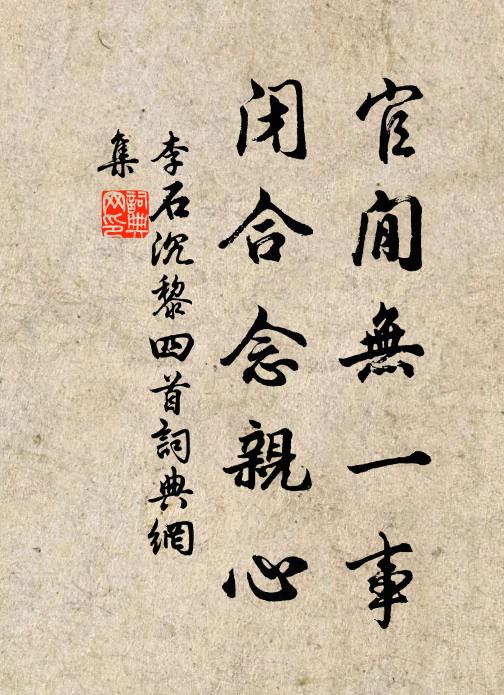 官閒無一事
閉合念親心
李石沉黎四首詞典網
集
詞典
网印